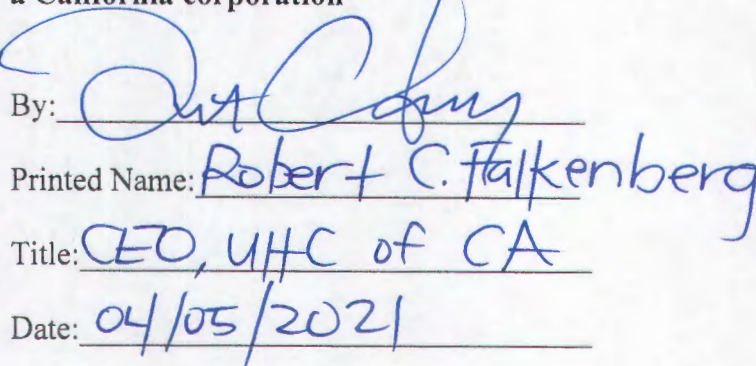 a California corporation
By:
Printed Name: Robert C. Falkenberg
Title: CEO, UHC of CA
Date: 04/05/2021